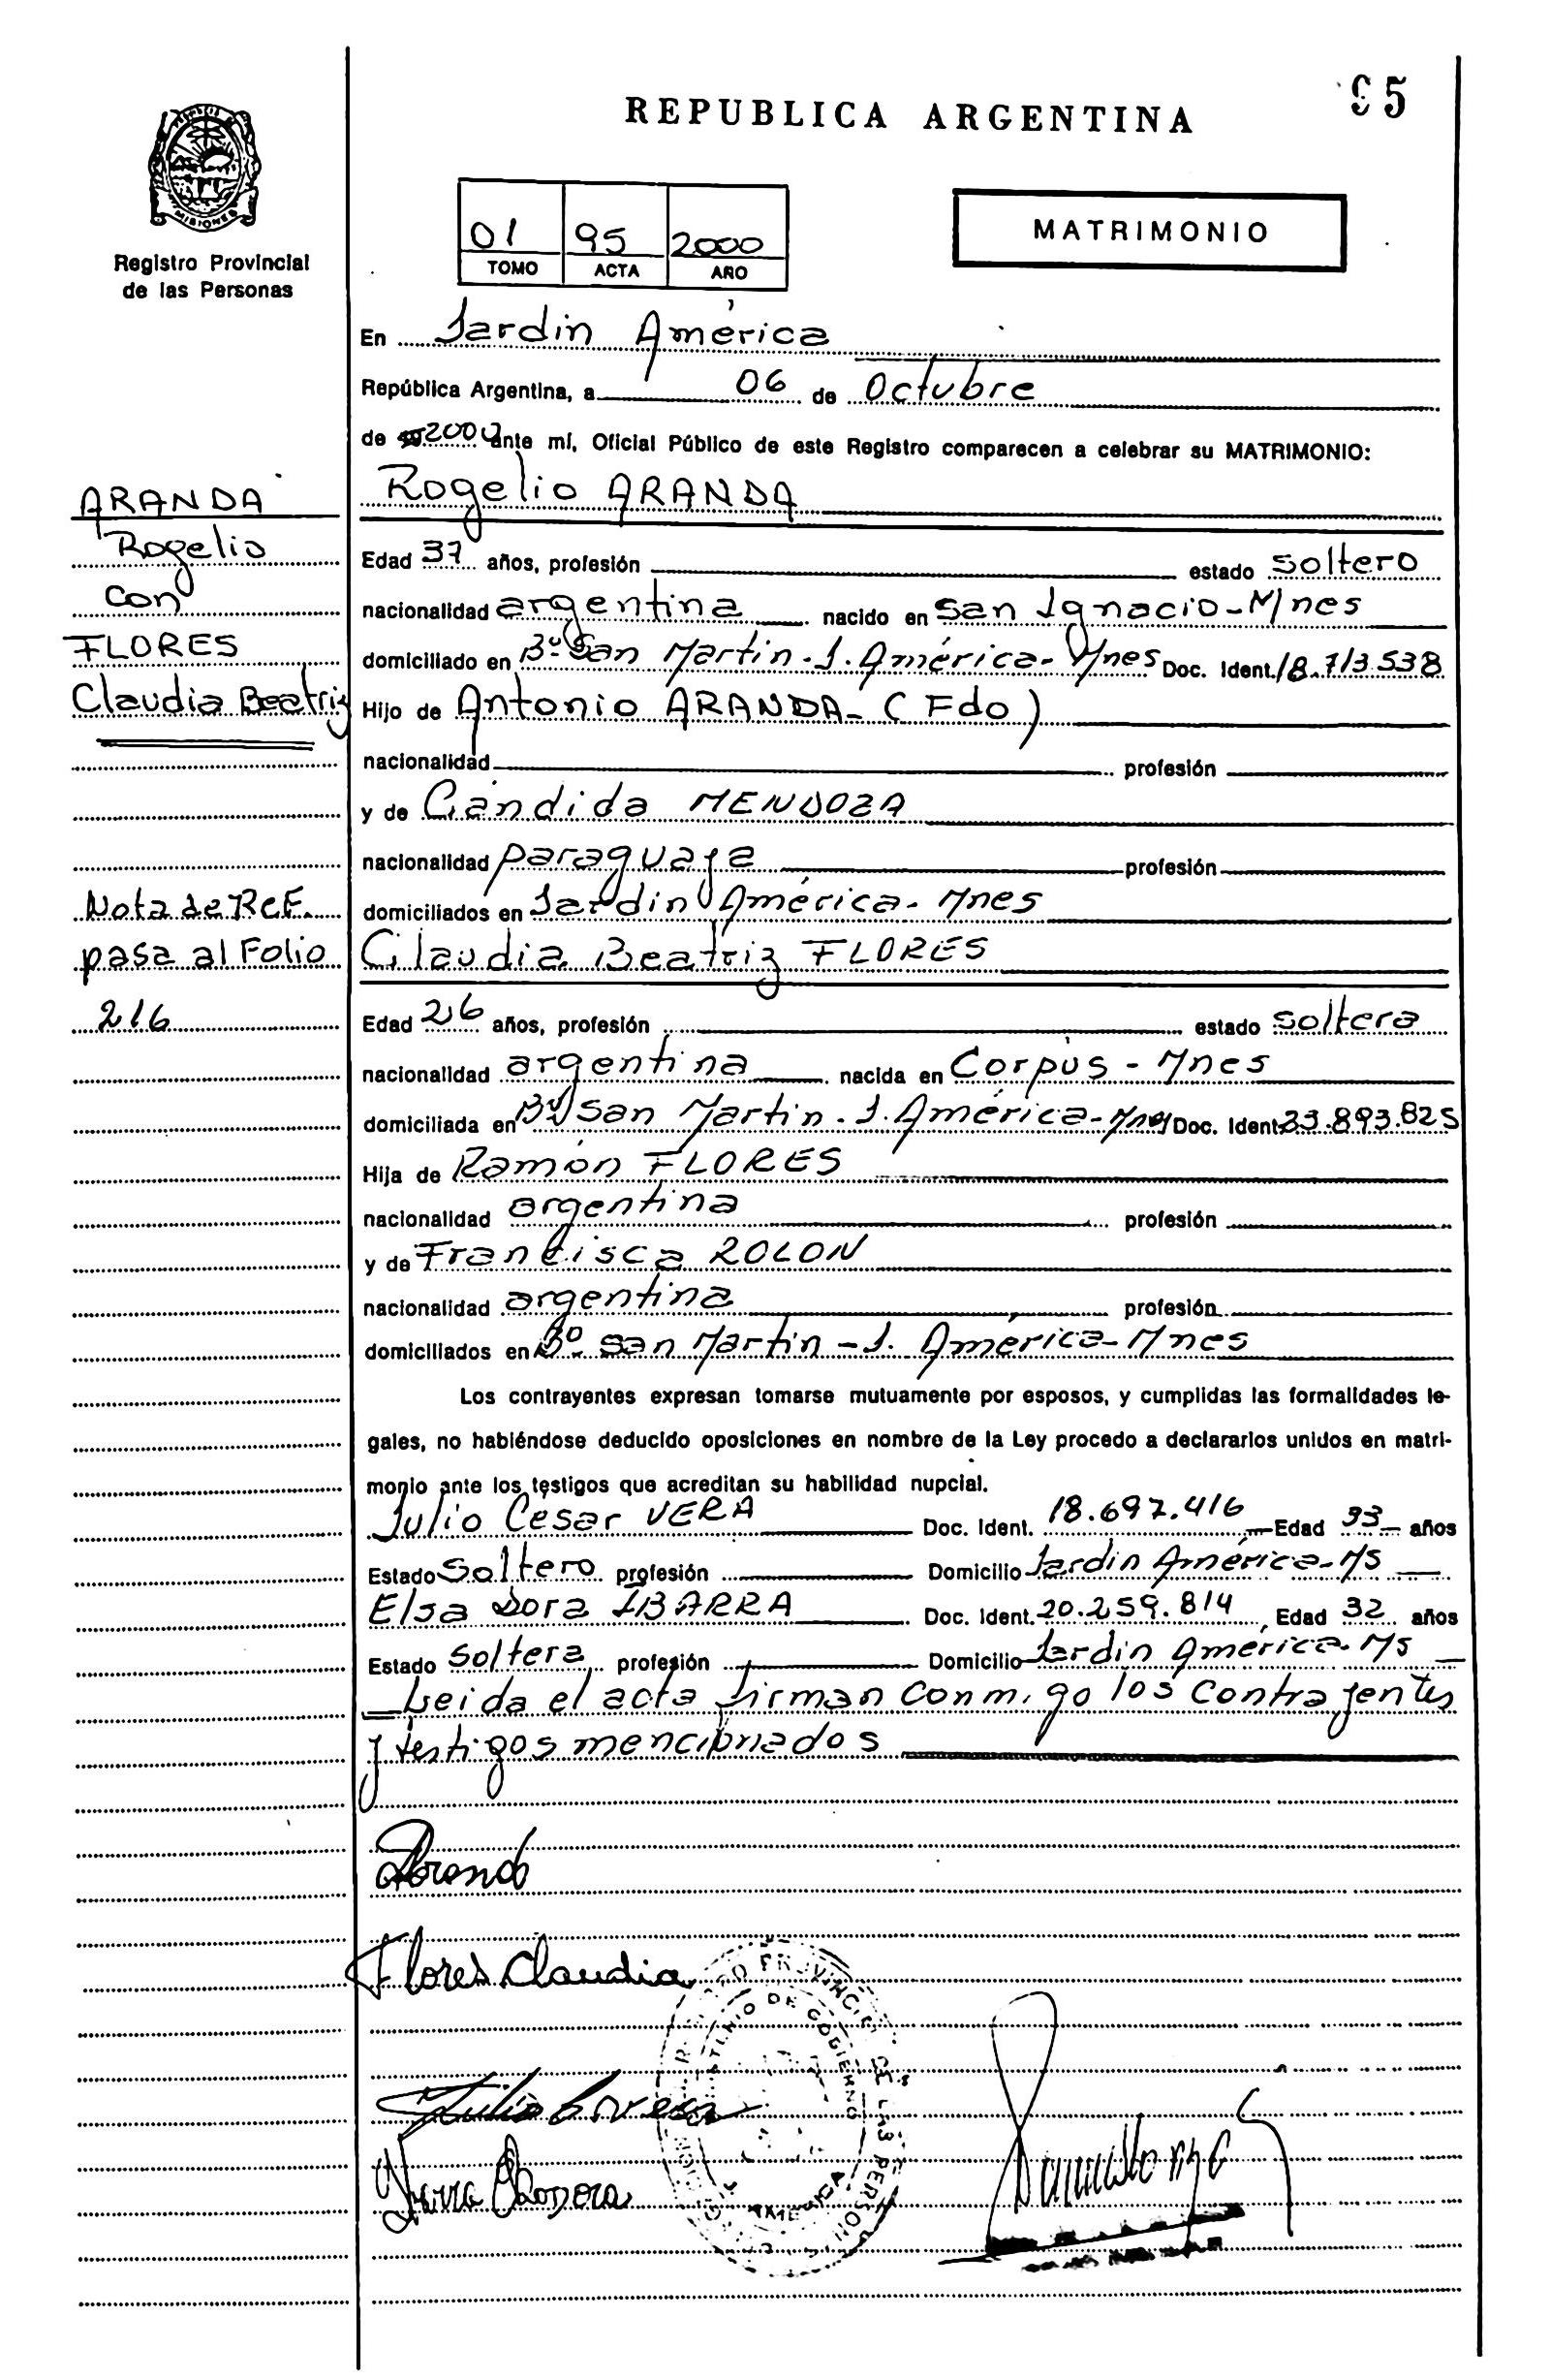 95
REPUBLICA ARGENTINA
MISIONES
Registro Provincial
de las Personas
01 95 2000
TOMO ACTA AÑO
MATRIMONIO
En Jardín América
República Argentina, a 06 de Octubre
de 2000 ante mí, Oficial Público de este Registro comparecen a celebrar su MATRIMONIO:
Rogelio ARANDA
ARANDA
Rogelio
con
FLORES
Claudia Beatriz
Edad 37 años, profesión estado soltero
nacionalidad argentina nacido en san Ignacio-Mnes
domiciliado en Bº San Martín-J. América-Mnes Doc. Ident. 18.713.538
Hijo de Antonio ARANDA- (Fdo)
nacionalidad profesión
y de Cándida MENDOZA
nacionalidad paraguaya profesión
domiciliados en Jardín América-Mnes
Nota de Ref.
pasa al Folio
216
Claudia Beatriz FLORES
Edad 26 años, profesión estado soltera
nacionalidad argentina nacida en Corpus-Mnes
domiciliada en Bº San Martín-J. América-Mnes Doc. Ident. 23.893.825
Hija de Ramón FLORES
nacionalidad argentina profesión
y de Francisca ROLON
nacionalidad argentina profesión
domiciliados en Bº San Martín-J. América-Mnes
Los contrayentes expresan tomarse mutuamente por esposos, y cumplidas las formalidades le-
gales, no habiéndose deducido oposiciones en nombre de la Ley procedo a declararlos unidos en matri-
monio ante los testigos que acreditan su habilidad nupcial.
Julio Cesar VERA Doc. Ident. 18.697.416 Edad 33 años
Estado Soltero profesión Domicilio Jardín América-Ms
Elsa Dora IBARRA Doc. Ident. 20.259.814 Edad 32 años
Estado soltera profesión Domicilio Jardín América-Ms
Leida el acta firman conmigo los contrayentes
y testigos mencionados
Flores Claudia